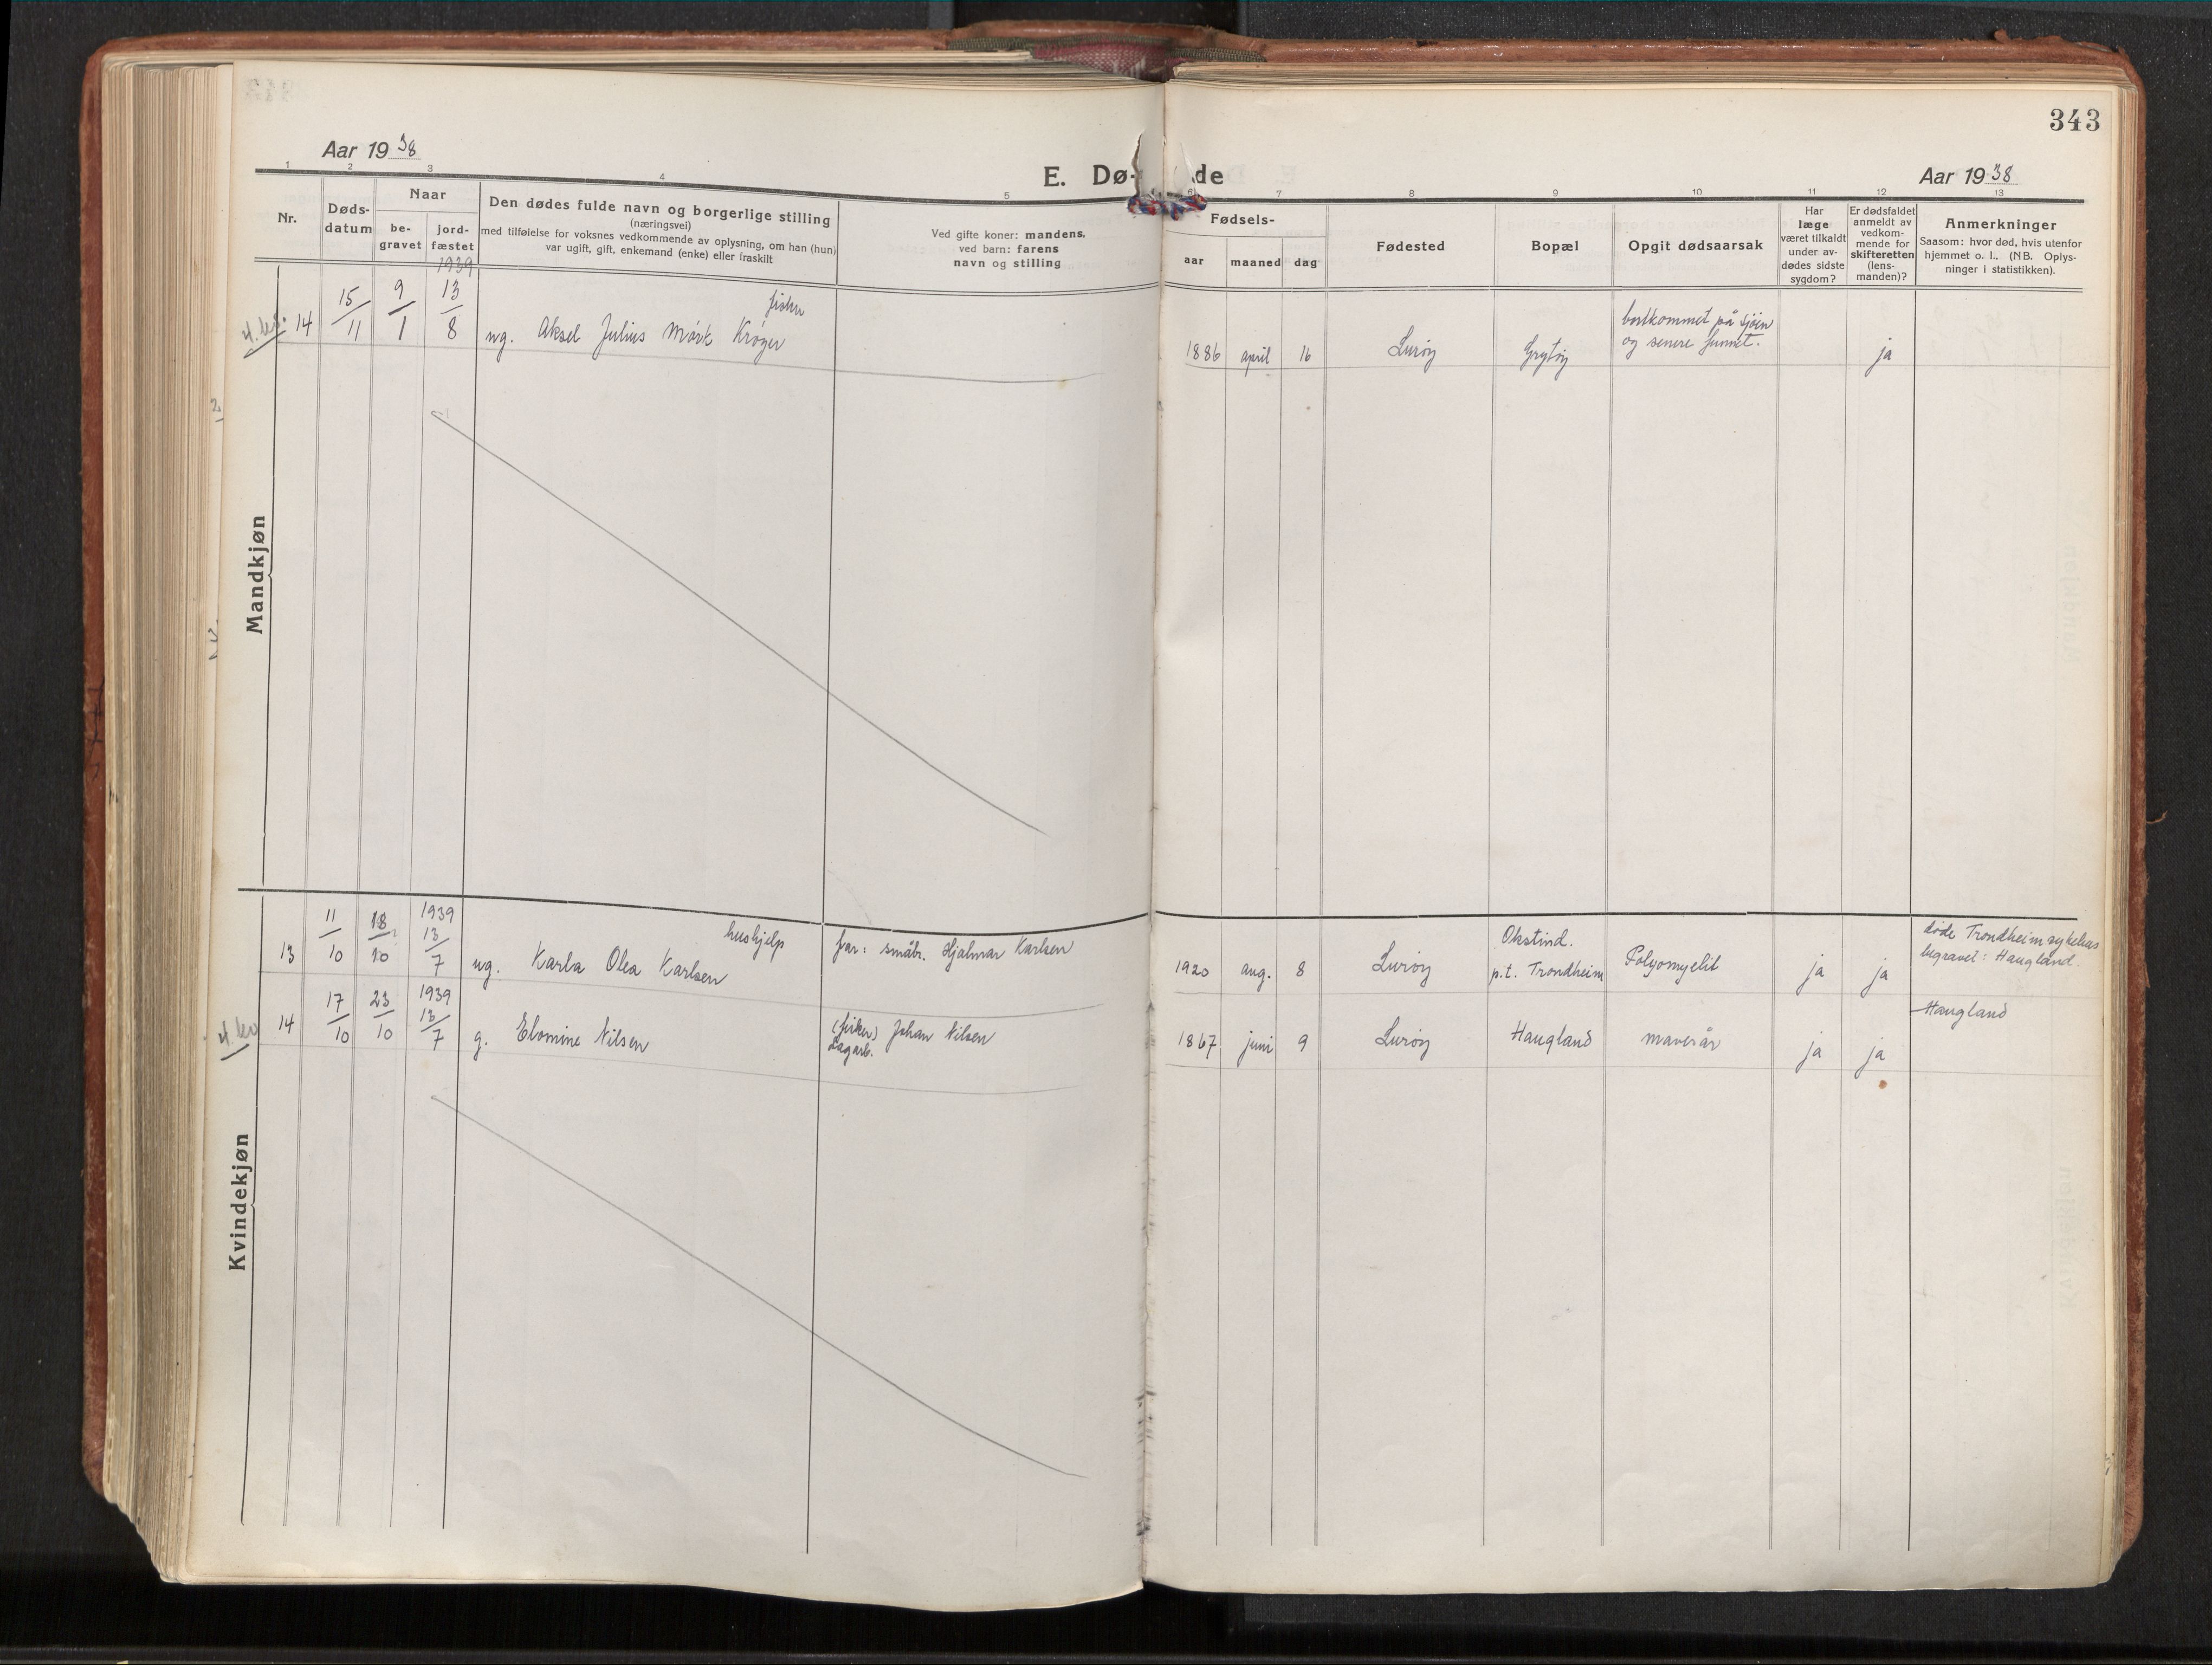 343
Aar 1938
E. Dø- de
Aar 1938
1 2 3 4 5 6 7 8 9 10 11 12 13
Nr.
Døds-
datum
Naar
be-
gravet
jord-
fæstet
Den dødes fulde navn og borgerlige stilling
(næringsvei)
med tilføielse for voksnes vedkommende av oplysning, om han (hun)
var ugift, gift, enkemand (enke) eller fraskilt
Ved gifte koner: mandens,
ved barn: farens
navn og stilling
Fødsels-
aar maaned dag
Fødested
Bopæl
Opgit dødsaarsak
Har
læge
været tilkaldt
under av-
dødes sidste
sygdom?
Er dødsfaldet
anmeldt av
vedkom-
mende for
skifteretten
(lens-
manden)?
Anmerkninger
Saasom: hvor død, hvis utenfor
hjemmet o. l.. (NB. Oplys-
ninger i statistikken).
Mandkjøn
1939
14 15/11 9/1 13/8
fisker
ug. Aksel Julius Mørk Krøger
1886 april 16 Lurøy Grytøy
bortkommet på sjøen
og senere funnet.
ja
Kvindekjøn
1939
13 11/10 18/10 13/7
hushjelp
ug. Karla Olea Karlsen
far: småbr. Hjalmar Karlsen
1920 aug. 8 Lurøy
Okstind.
p.t. Trondheim
Polyomyelit
ja ja
døde Trondheim sykehus
begravet: Haugland.
1939
14 17/10 23/10 13/7
g. Elomine Nilsen
(fisker) Johan Nilsen
Lagarb.
1867 juni 9 Lurøy Haugland mavesår
ja ja
Haugland